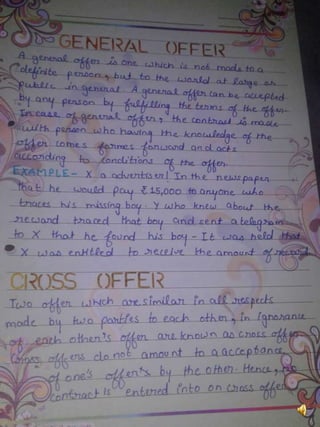 GENERAL OFFER
A general offer is one which is not made to a
definite person, but to the world at large or
public in general. A general offer can be accepted
by any person by fulfilling the terms of the offer.
In case of general offer, the contract is made
with person who having the knowledge of the
offer comes formes forward and acts
according to conditions of the offer.
EXAMPLE- X a advertiser! In the newspaper
that he would pay ₹15,000 to anyone who
traces his missing boy. Y who knew about the
reward traced that boy and sent a telegram
to X that he found his boy - It was held that
X was entitled to receive the amount of reward.
CROSS OFFER
Two offer which are similar in all respects
made by two parties to each other, in ignorance
of each other's offer are known as cross offer.
Cross offers do not amount to a acceptance
of one's offer's by the other. Hence, no
contract is entered into on cross offer